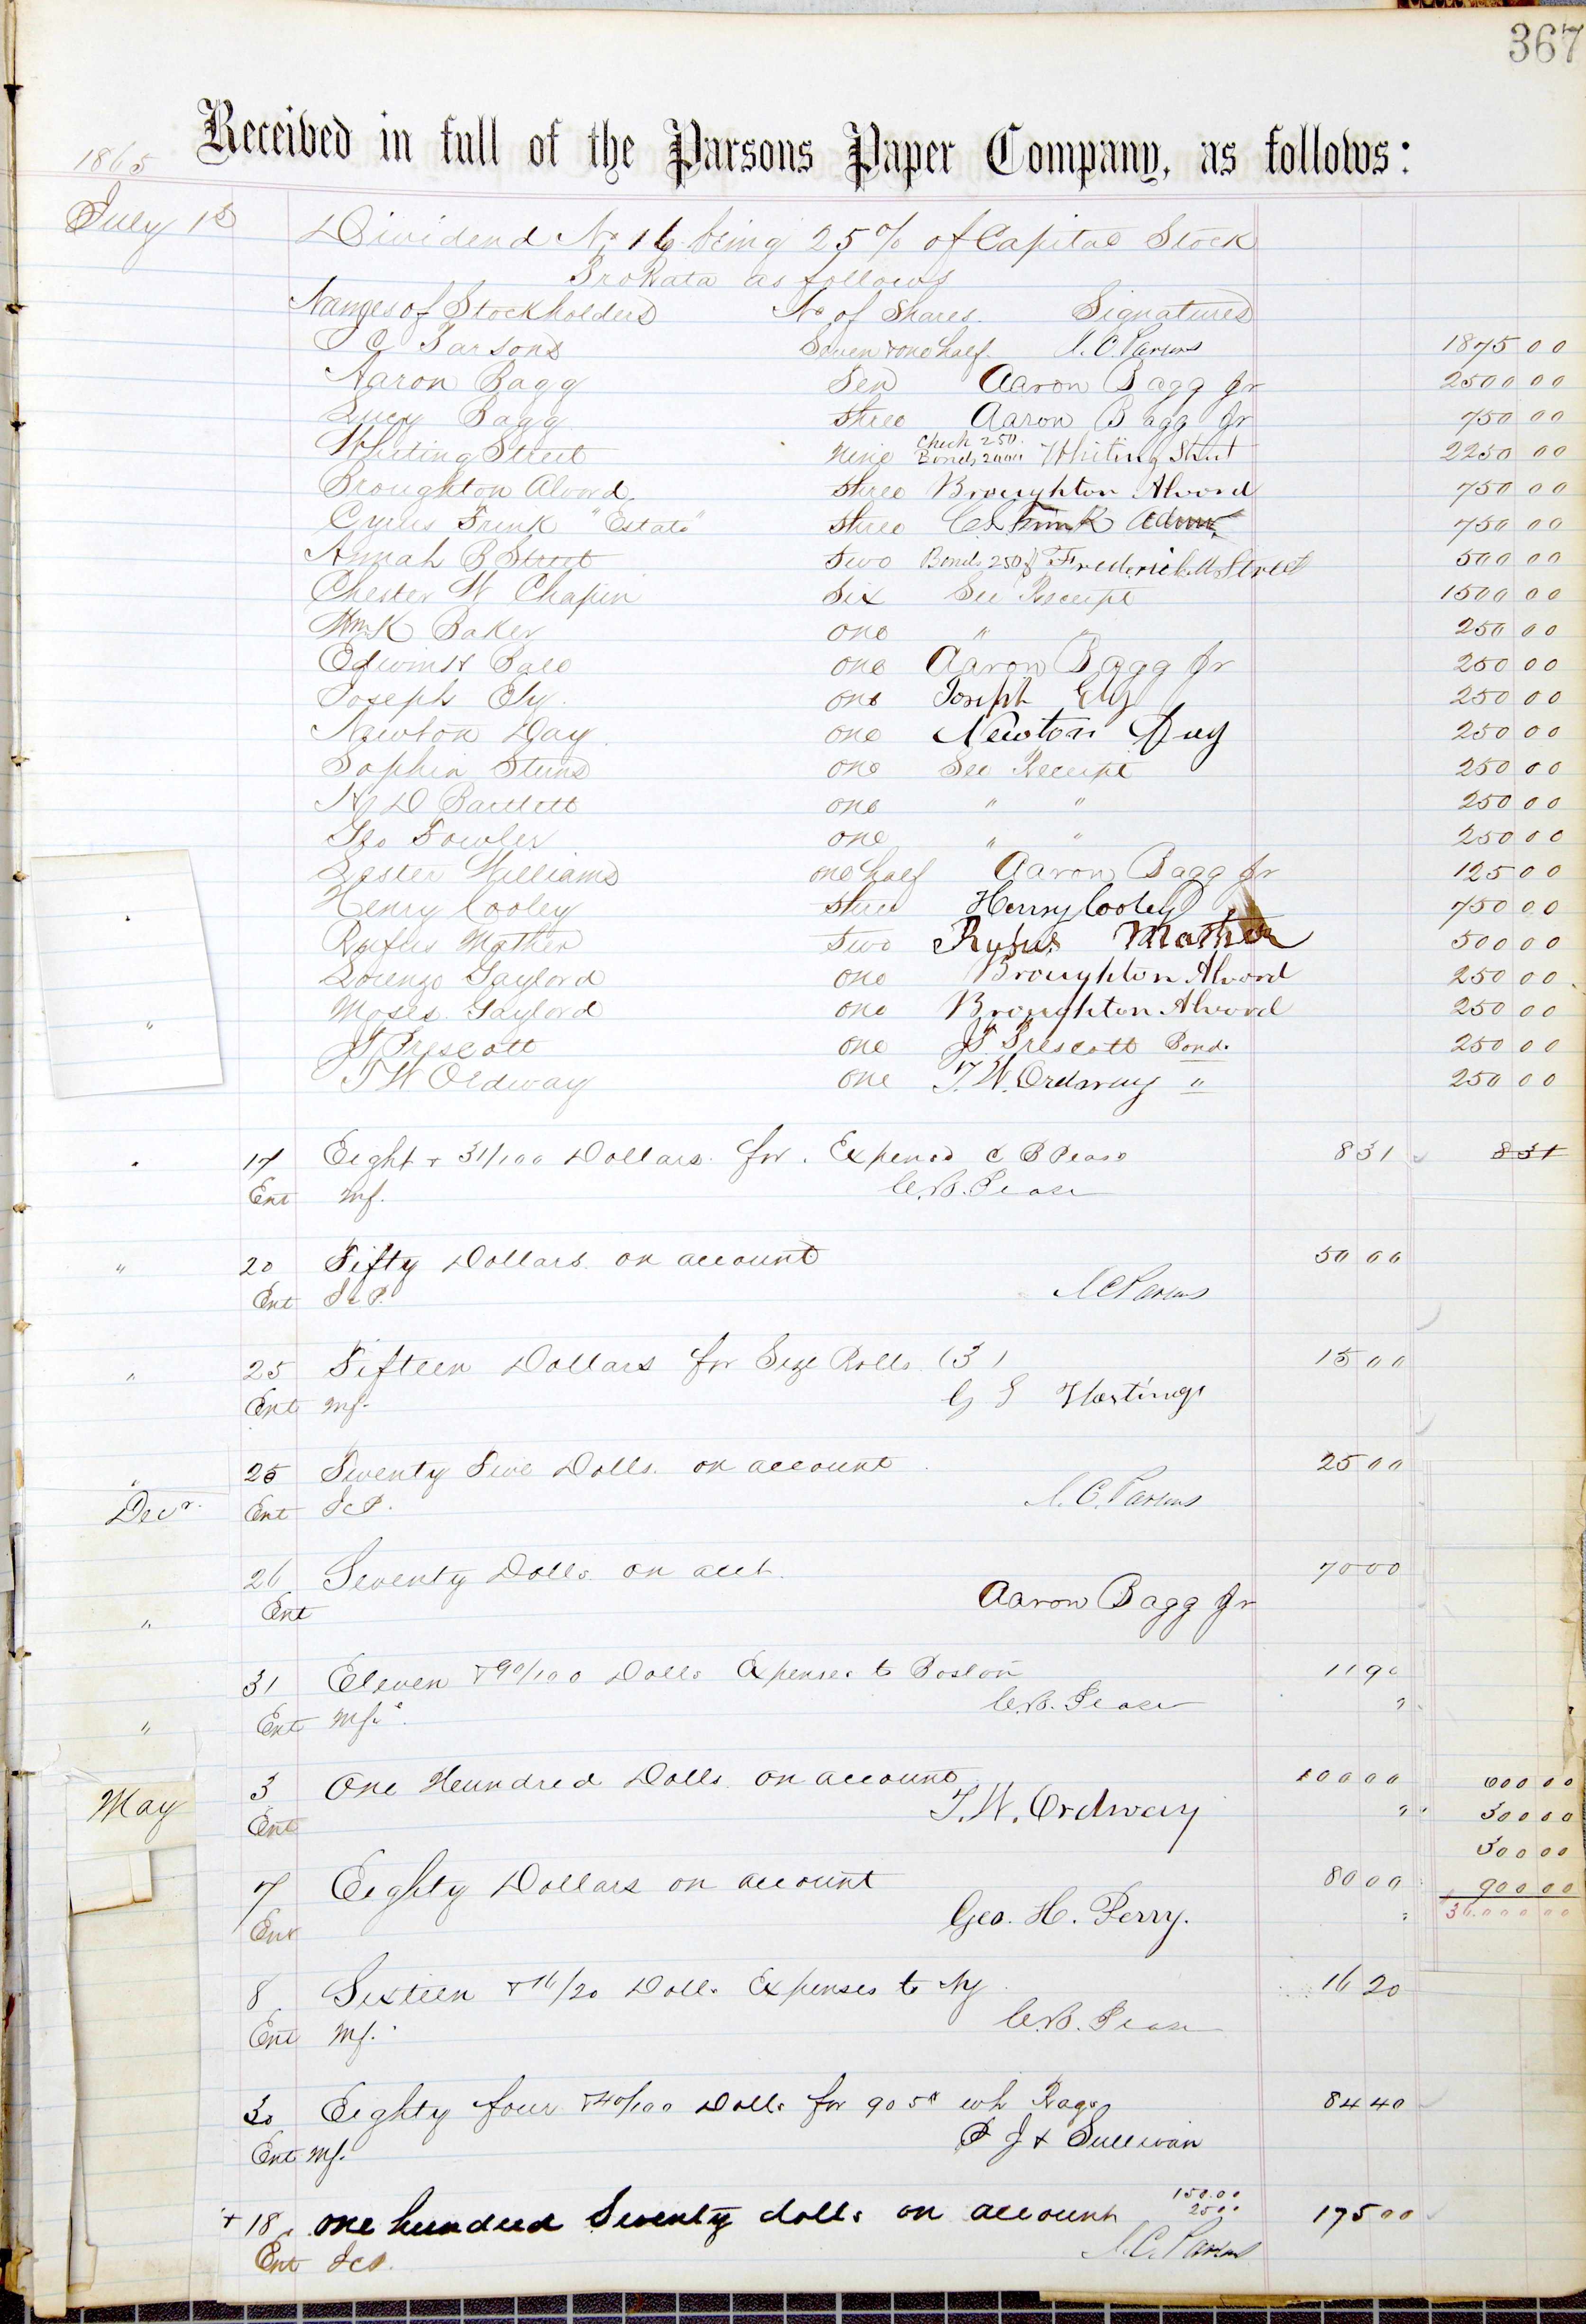 367
Received in full of the Parsons Paper Company, as follows:
1865
July 1st Dividend No 16 being 25% of Capital Stock
ProRata as follows
Names of Stockholders No of Shares. Signatures
J C Parsons Seven & one half. J. C. Parsons 1875 00
Aaron Bagg Ten Aaron Bagg Jr 2500 00
Lucy Bagg three Aaron Bagg Jr 750 00
Check 250.
Whiting Street Nine Bonds 2000 Whiting Street 2250 00
Broughton Alvord. three Broughton Alvord 750 00
Cyrus Frink "Estate" three C S Frink Admr 750 00
Annah B Street Two Bonds 250 Frederick M Street 500 00
Chester W Chapin Six See Receipt 1500 00
Wm K Baker one " " 250 00
Edwin H Ball one Aaron Bagg Jr 250 00
Joseph Ely. one Joseph Ely 250 00
Newton Day. one Newton Day 250 00
Sophia Sterns one See Receipt 250 00
H D Bartlett one " " 250 00
Geo Fowler one " " 250 00
Lester Williams one half Aaron Bagg Jr 125 00
Henry Cooley three Henry Cooley 750 00
Rufus Mather Two Rufus Mather 500 00
Lorenzo Gaylord one Broughton Alvord 250 00
Moses Gaylord one Broughton Alvord 250 00
J Prescott one J Prescott Bond. 250 00
T W Oldway one T. W. Ordway " 250 00
17 Eight & 31/100 Dollars for Expenses C B Pease 8 31 8 31
Ent Mf. C. B. Pease
" 20 Fifty Dollars on account 50 00
Ent J C P. J C Parsons
" 25 Fifteen Dollars for Size Rolls (3) 15 00
Ent Mf. G S Hastings
" 25 Twenty Five Dolls. on account 25 00
Decr. Ent J C P. J. C. Parsons
26 Seventy Dolls on acct. 70 00
" Ent Aaron Bagg Jr
31 Eleven & 90/100 Dolls Expenses to Boston 11 90
" Ent Mf. C. B. Pease "
3 One Hundred Dolls on account 100 00 000 00
May Ent T. W. Ordway " 300 00
300 00
7 Eighty Dollars on account 80 00 900 00
Ent Geo. H. Perry. "
8 Sixteen & 16/20 Dolls Expenses to Ny 16 20
Ent Mf. C. B. Pease
30 Eighty four & 40/100 Dolls for 905# wh Rags 84 40
Ent Mf. P J & Sullivan
150.00
25 00
+ 18 one hundred Seventy dolls on account 175 00
Ent J C P. J. C. Parsons